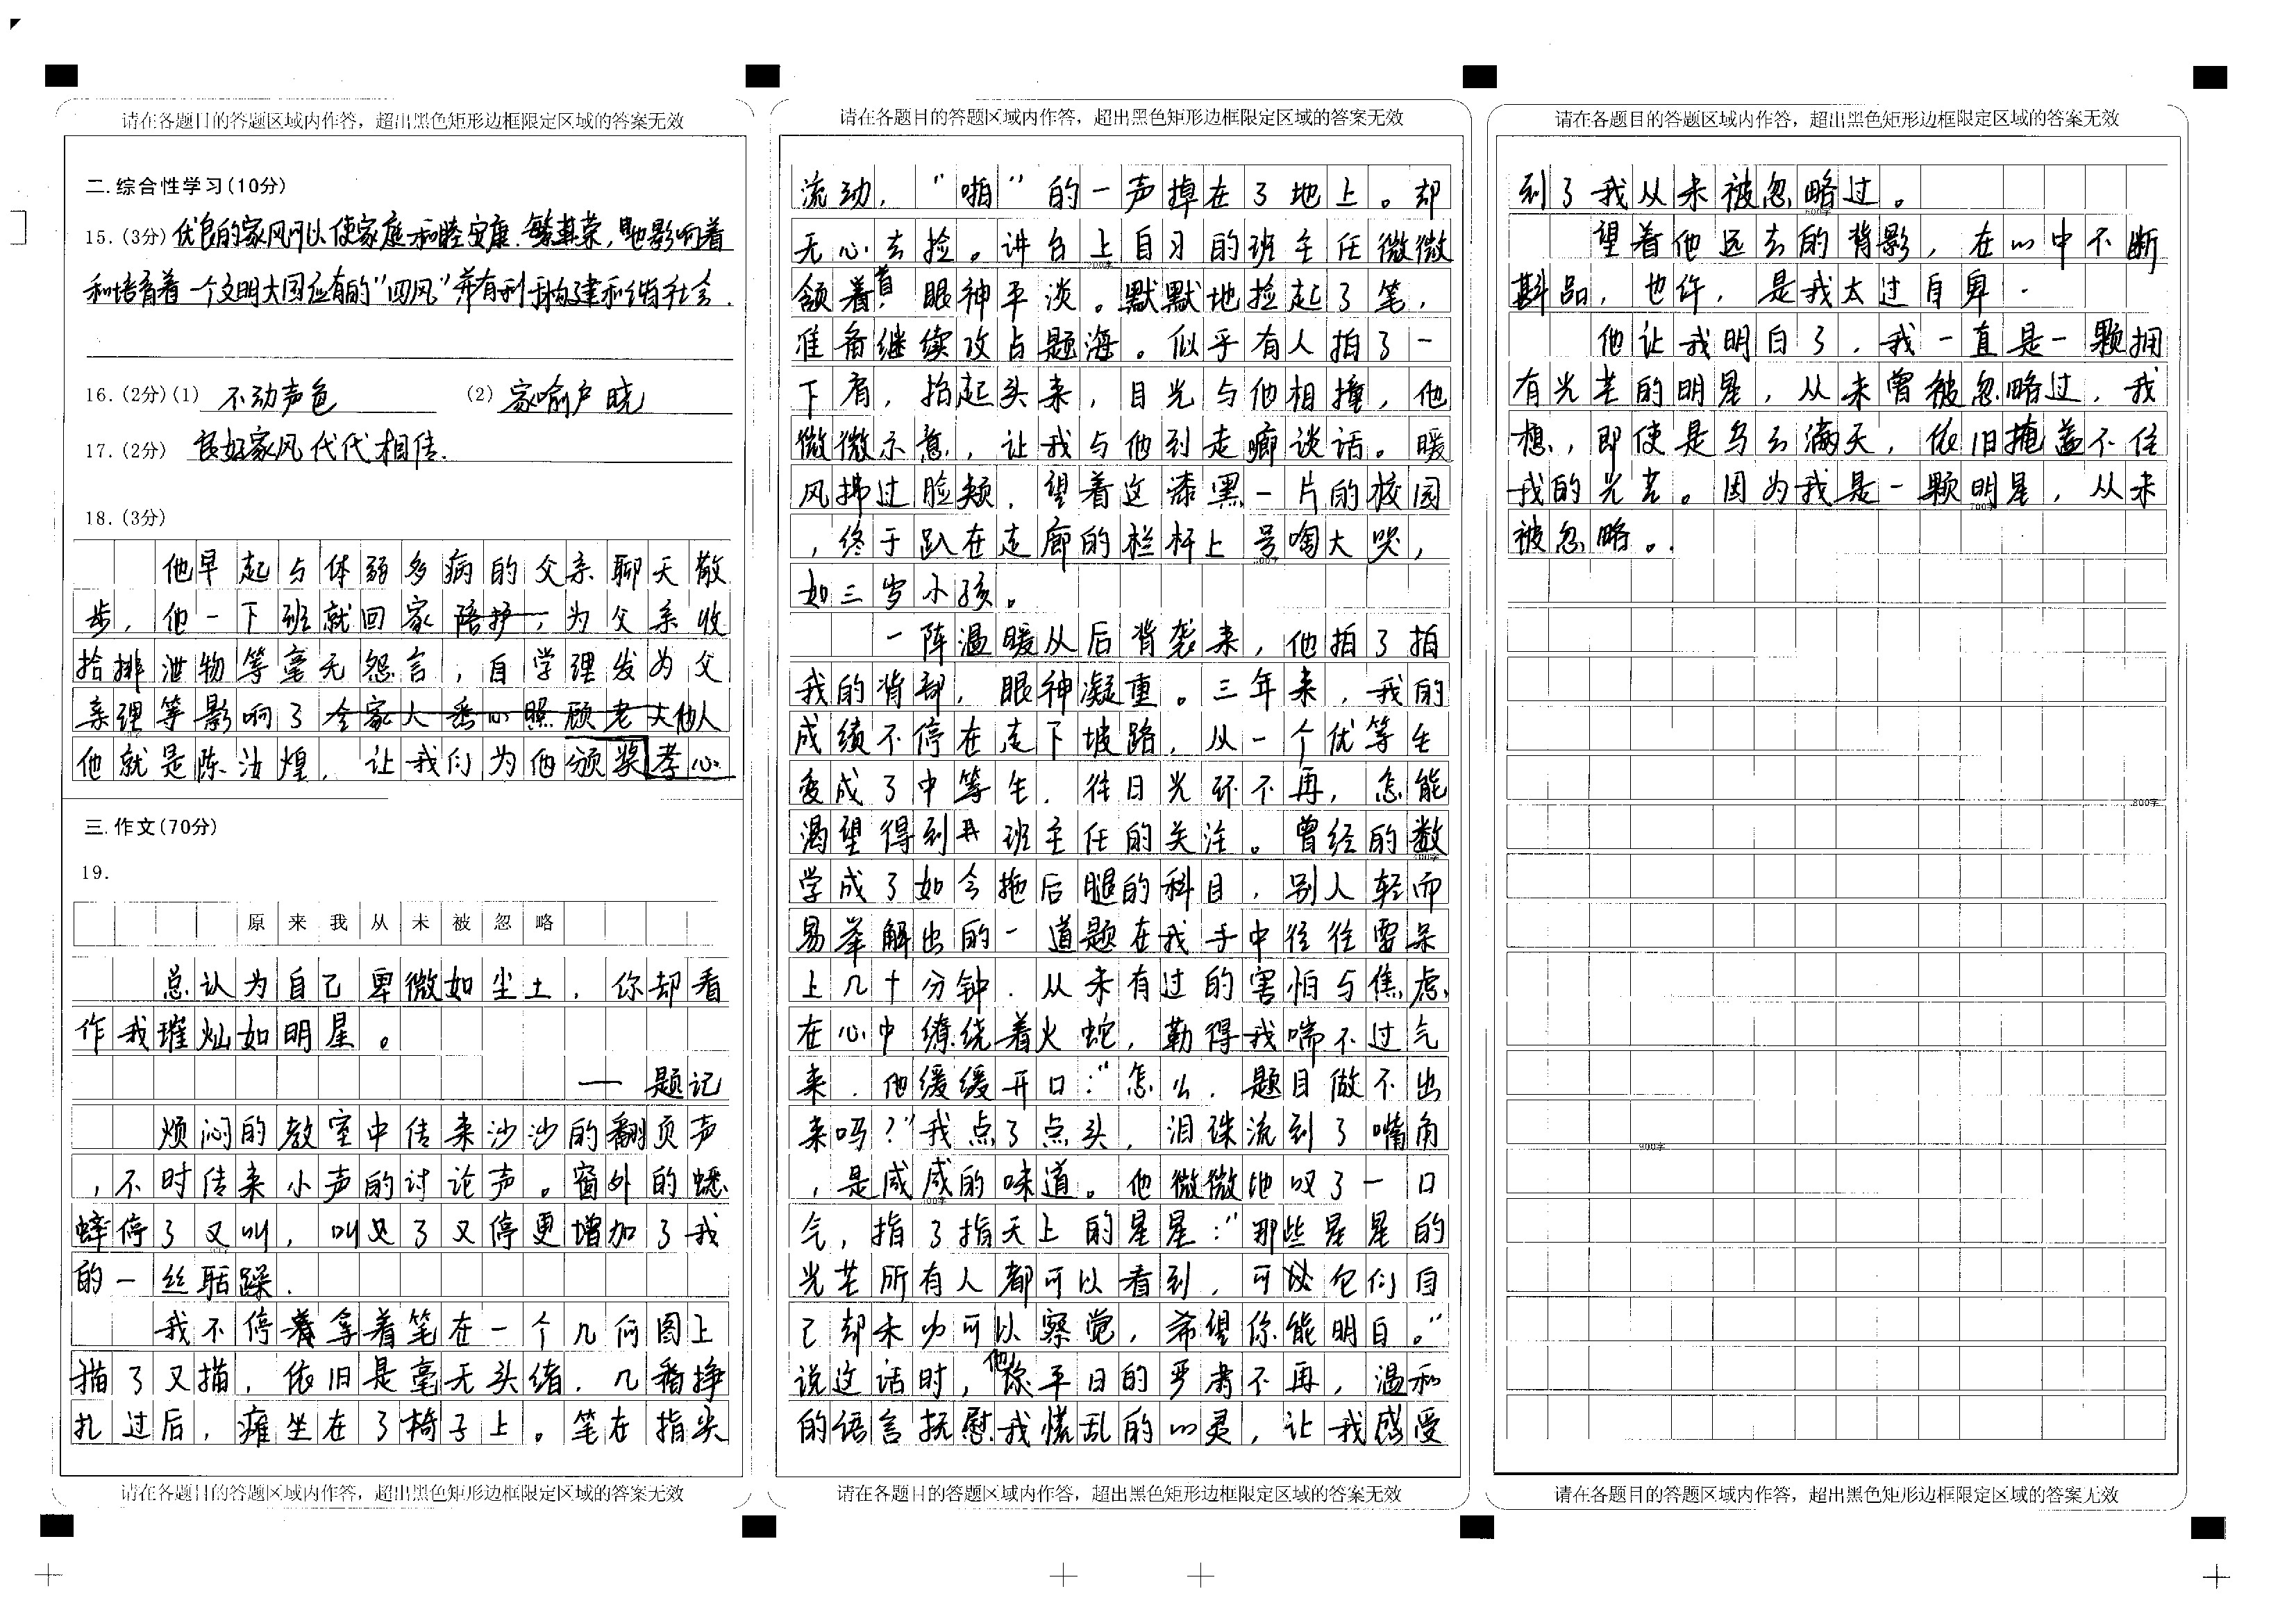 请在各题目的答题区域内作答，超出黑色矩形边框限定区域的答案无效
二.综合性学习(10分)
15.(3分) 优良的家风可以使家庭和睦安康、繁荣，也影响着
和培育着一个文明大国应有的“四风”并有利于构建和谐社会.
16.(2分)(1) 不动声色 (2) 家喻户晓
17.(2分) 良好家风代代相传.
18.(3分)
他早起与体弱多病的父亲聊天散
步，他一下班就回家，为父亲收
拾排泄物等毫无怨言，自学理发为父
亲理等影响了他人
他就是陈汝煌，让我们为他颁奖孝心
三.作文(70分)
19.
原来我从未被忽略
总认为自己卑微如尘土，你却看
作我璀灿如明星。
—题记
烦闷的教室中传来沙沙的翻页声
，不时传来小声的讨论声。窗外的蟋
蟀停了又叫，叫了又停更增加了我
的一丝聒躁.
我不停拿着笔在一个几何图上
描了又描，依旧是毫无头绪.几番挣
扎过后，瘫坐在了椅子上。笔在指尖
请在各题目的答题区域内作答，超出黑色矩形边框限定区域的答案无效
请在各题目的答题区域内作答，超出黑色矩形边框限定区域的答案无效
流动，“啪”的一声掉在了地上。却
无心去捡。讲台上自习的班主任微微
颔着首，眼神平淡。默默地捡起了笔，
准备继续攻占题海。似乎有人拍了一
下肩，抬起头来，目光与他相撞，他
微微示意，让我与他到走廊谈话。暖
风拂过脸颊，望着这漆黑一片的校园
，终于趴在走廊的栏杆上号啕大哭，
如三岁小孩。
一阵温暖从后背袭来，他拍了拍
我的背部，眼神凝重。三年来，我的
成绩不停在走下坡路，从一个优等生
变成了中等生.往日光环不再，怎能
渴望得到班主任的关注。曾经的数
学成了如今拖后腿的科目，别人轻而
易举解出的一道题在我手中往往要呆
上几十分钟.从未有过的害怕与焦虑
在心中缭绕着火蛇，勒得我喘不过气
来.他缓缓开口：“怎么，题目做不出
来吗？”我点了点头，泪珠流到了嘴角
，是咸咸的味道。他微微地叹了一口
气，指了指天上的星星：“那些星星的
光芒所有人都可以看到，可它们自
己却未必可以察觉，希望你能明白。”
说这话时，他平日的严肃不再，温和
的语言抚慰我慌乱的心灵，让我感受
请在各题目的答题区域内作答，超出黑色矩形边框限定区域的答案无效
请在各题目的答题区域内作答，超出黑色矩形边框限定区域的答案无效
到了我从未被忽略过。
600字
望着他远去的背影，在心中不断
斟品，也许，是我太过自卑.
他让我明白了，我一直是一颗拥
有光芒的明星，从未曾被忽略过，我
想，即使是乌云满天，依旧掩盖不住
我的光芒。因为我是一颗明星，从未
700字
被忽略。
800字
900字
请在各题目的答题区域内作答，超出黑色矩形边框限定区域的答案无效